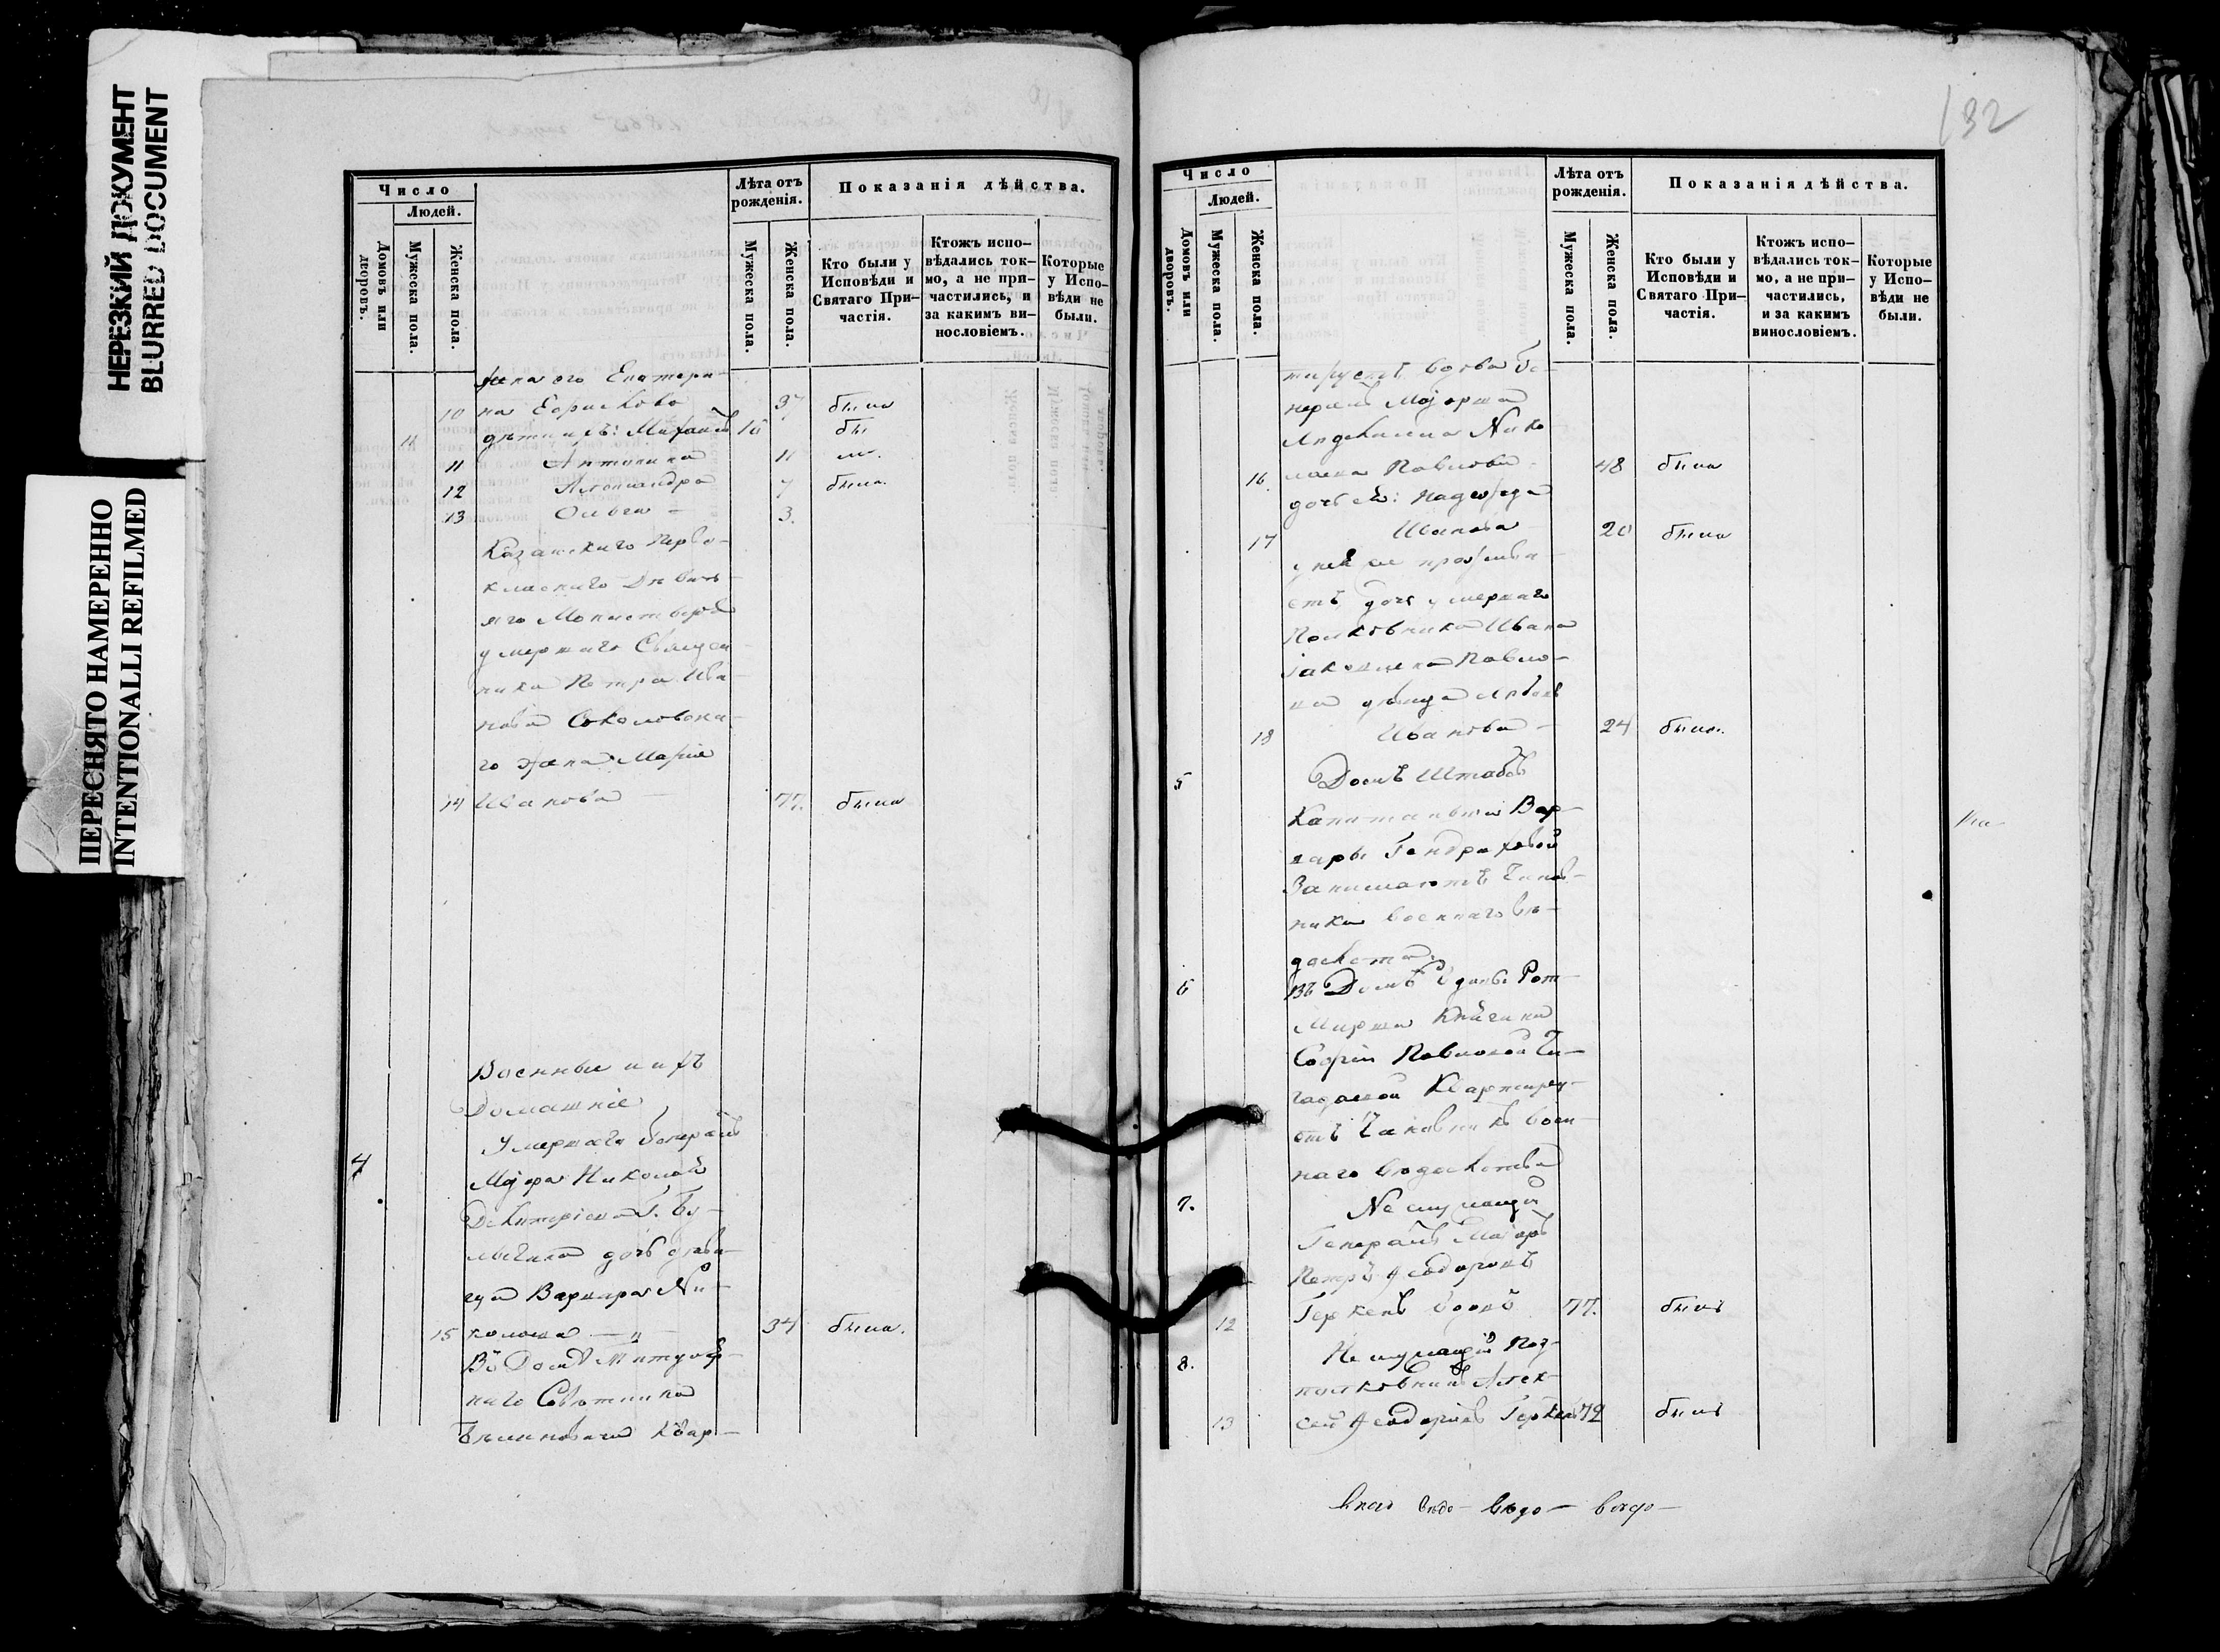 НЕРЕЗКИЙ ДОКУМЕНТ
BLURRED DOCUMENT
ПЕРЕСНЯТО НАМЕРЕННО
INTENTIONALLI REFILMED
Число
Людей.
Домовъ или дворовъ.
Мужеска пола.
Женска пола.
Лѣта отъ рожденія.
Мужеска пола.
Женска пола.
Показанія дѣйства.
Кто были у Исповѣди и Святаго Причастія.
Ктожъ исповѣдались токмо, а не причастились, и за какимъ винословіемъ.
Которые у Исповѣди не были.
жена его Екатери-
10 на Борисова 37 была
11 дѣти ихъ: Михаилъ 16 былъ
11 Антонина 11
12 Александра 7 была
13 Ольга - 3.
Казанскаго Перво-
класнаго Дѣвичь-
яго Монастыря
умершаго Священ-
ника Петра Ива-
нова Соколовска-
го жена Марія
14 Иванова 77. была
Военные и ихъ
Домашніе
4 Умершаго Генералъ
Маіора Николая
дочь дѣви-
ца Варвара Ни-
15 колаева 34 была.
Въ Домѣ Титуляр-
наго Совѣтника
Квар-
132
Число
Людей.
Домовъ или дворовъ.
Мужеска пола.
Женска пола.
Лѣта отъ рожденія.
Мужеска пола.
Женска пола.
Показанія дѣйства.
Кто были у Исповѣди и Святаго Причастія.
Ктожъ исповѣдались токмо, а не причастились, и за какимъ винословіемъ.
Которые у Исповѣди не были.
тируетъ вдова Ге-
нералъ Маіорша
Нико-
16. лаева Павлова 48 была
дочь ея: Надежда
17 Иванова 20 была
у нея же прожива-
етъ дочь умершаго
Полковника Ивана
Павло-
ва дѣвица
18 Иванова - 24 была.
5 Домъ Штабсъ
Капитанши Вар-
вары Гендриховой
Занимаютъ Чинов-
ники военнаго вѣ-
домства.
6 Въ Домѣ вдовы Рот-
мирша Княгина
Софіи Павловой Чи-
гадаевой Квартиру-
етъ Чиновникъ воен-
наго вѣдомства
7. Неслужащій
Генералъ Маіоръ
Петръ Ѳеодоровъ
12 Геркенъ вдовъ 77. былъ
8. Неслужащій Под-
полковникъ Алек-
13 сей Ѳеодоровъ Геркенъ 72 былъ
вѣдо- вѣдо-